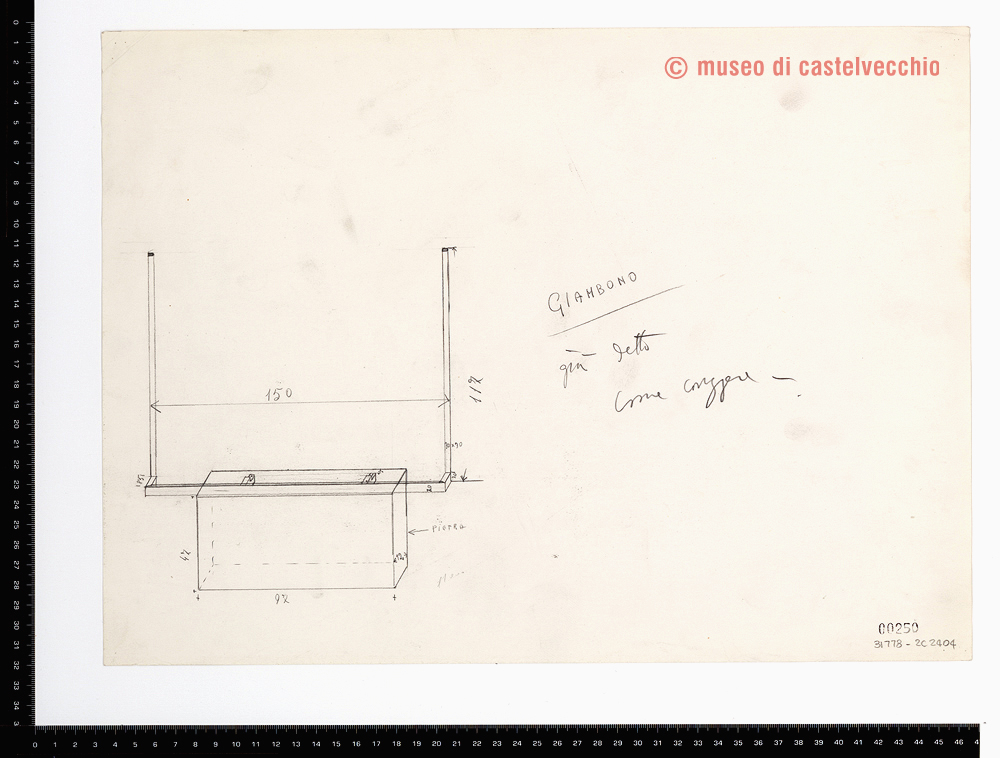 © museo di castelvecchio
GIAMBONO
già detto
come
150
117
PIETRA
47
97
00250
31778 - 2C 2404
0 1 2 3 4 5 6 7 8 9 10 11 12 13 14 15 16 17 18 19 20 21 22 23 24 25 26 27 28 29 30 31 32 33 34
0 1 2 3 4 5 6 7 8 9 10 11 12 13 14 15 16 17 18 19 20 21 22 23 24 25 26 27 28 29 30 31 32 33 34 35 36 37 38 39 40 41 42 43 44 45 46